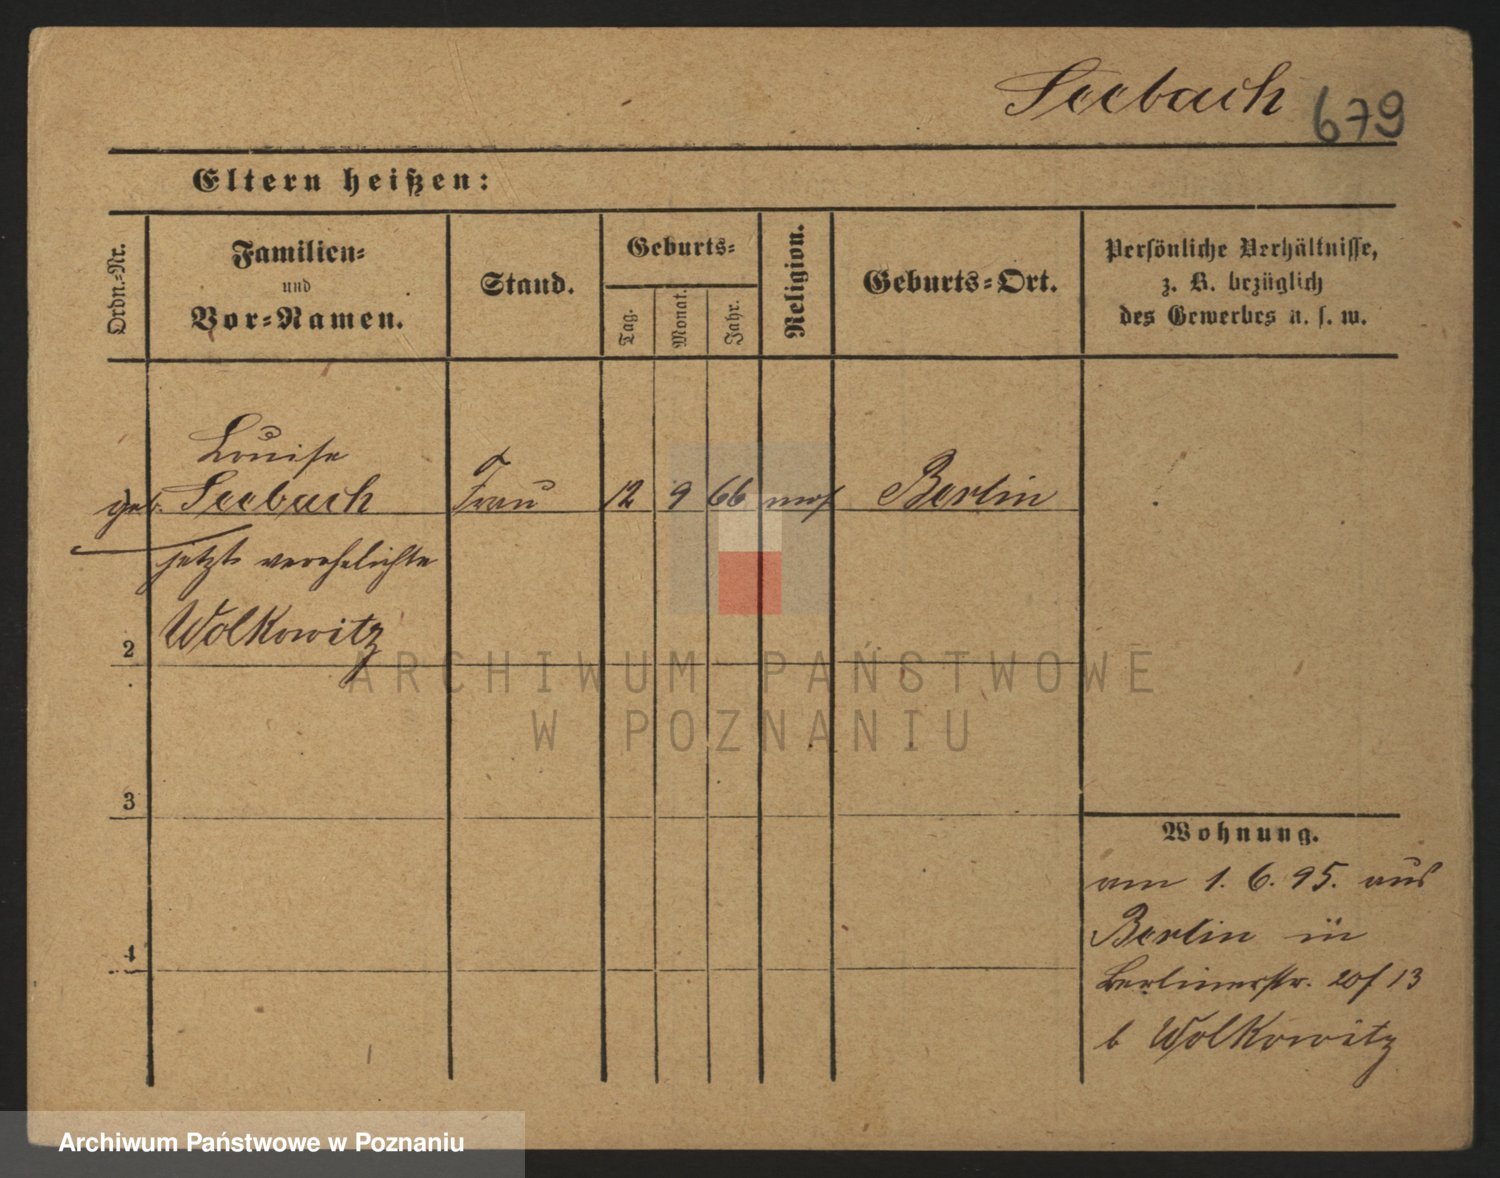 Seebach 679
Eltern heißen:
Ordn.-Nr.
Familien-
und
Vor-Namen.
Stand.
Geburts-
Tag.
Monat.
Jahr.
Religion.
Geburts-Ort.
Persönliche Verhältnisse,
z. B. bezüglich
des Gewerbes u. s. w.
Louise
geb. Seebach Frau 12 9 66 mos Berlin
jetzt verehelichte
Wolkowitz
2
3
4
Wohnung.
am 1. 6. 95. aus
Berlin in
Berlinerstr. 20/13
b Wolkowitz
ARCHIWUM PAŃSTWOWE
W POZNANIU
Archiwum Państwowe w Poznaniu